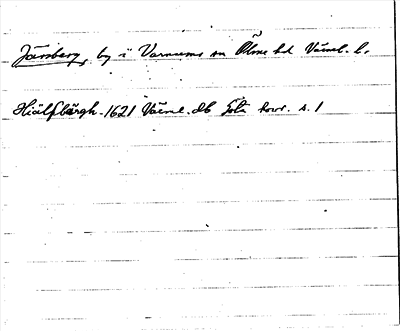 Jämberg, by i Varnums sn Ölme hd Värml. l.
Hiälfbärgh - 1621 Värml. db Göta hovr. s. 1